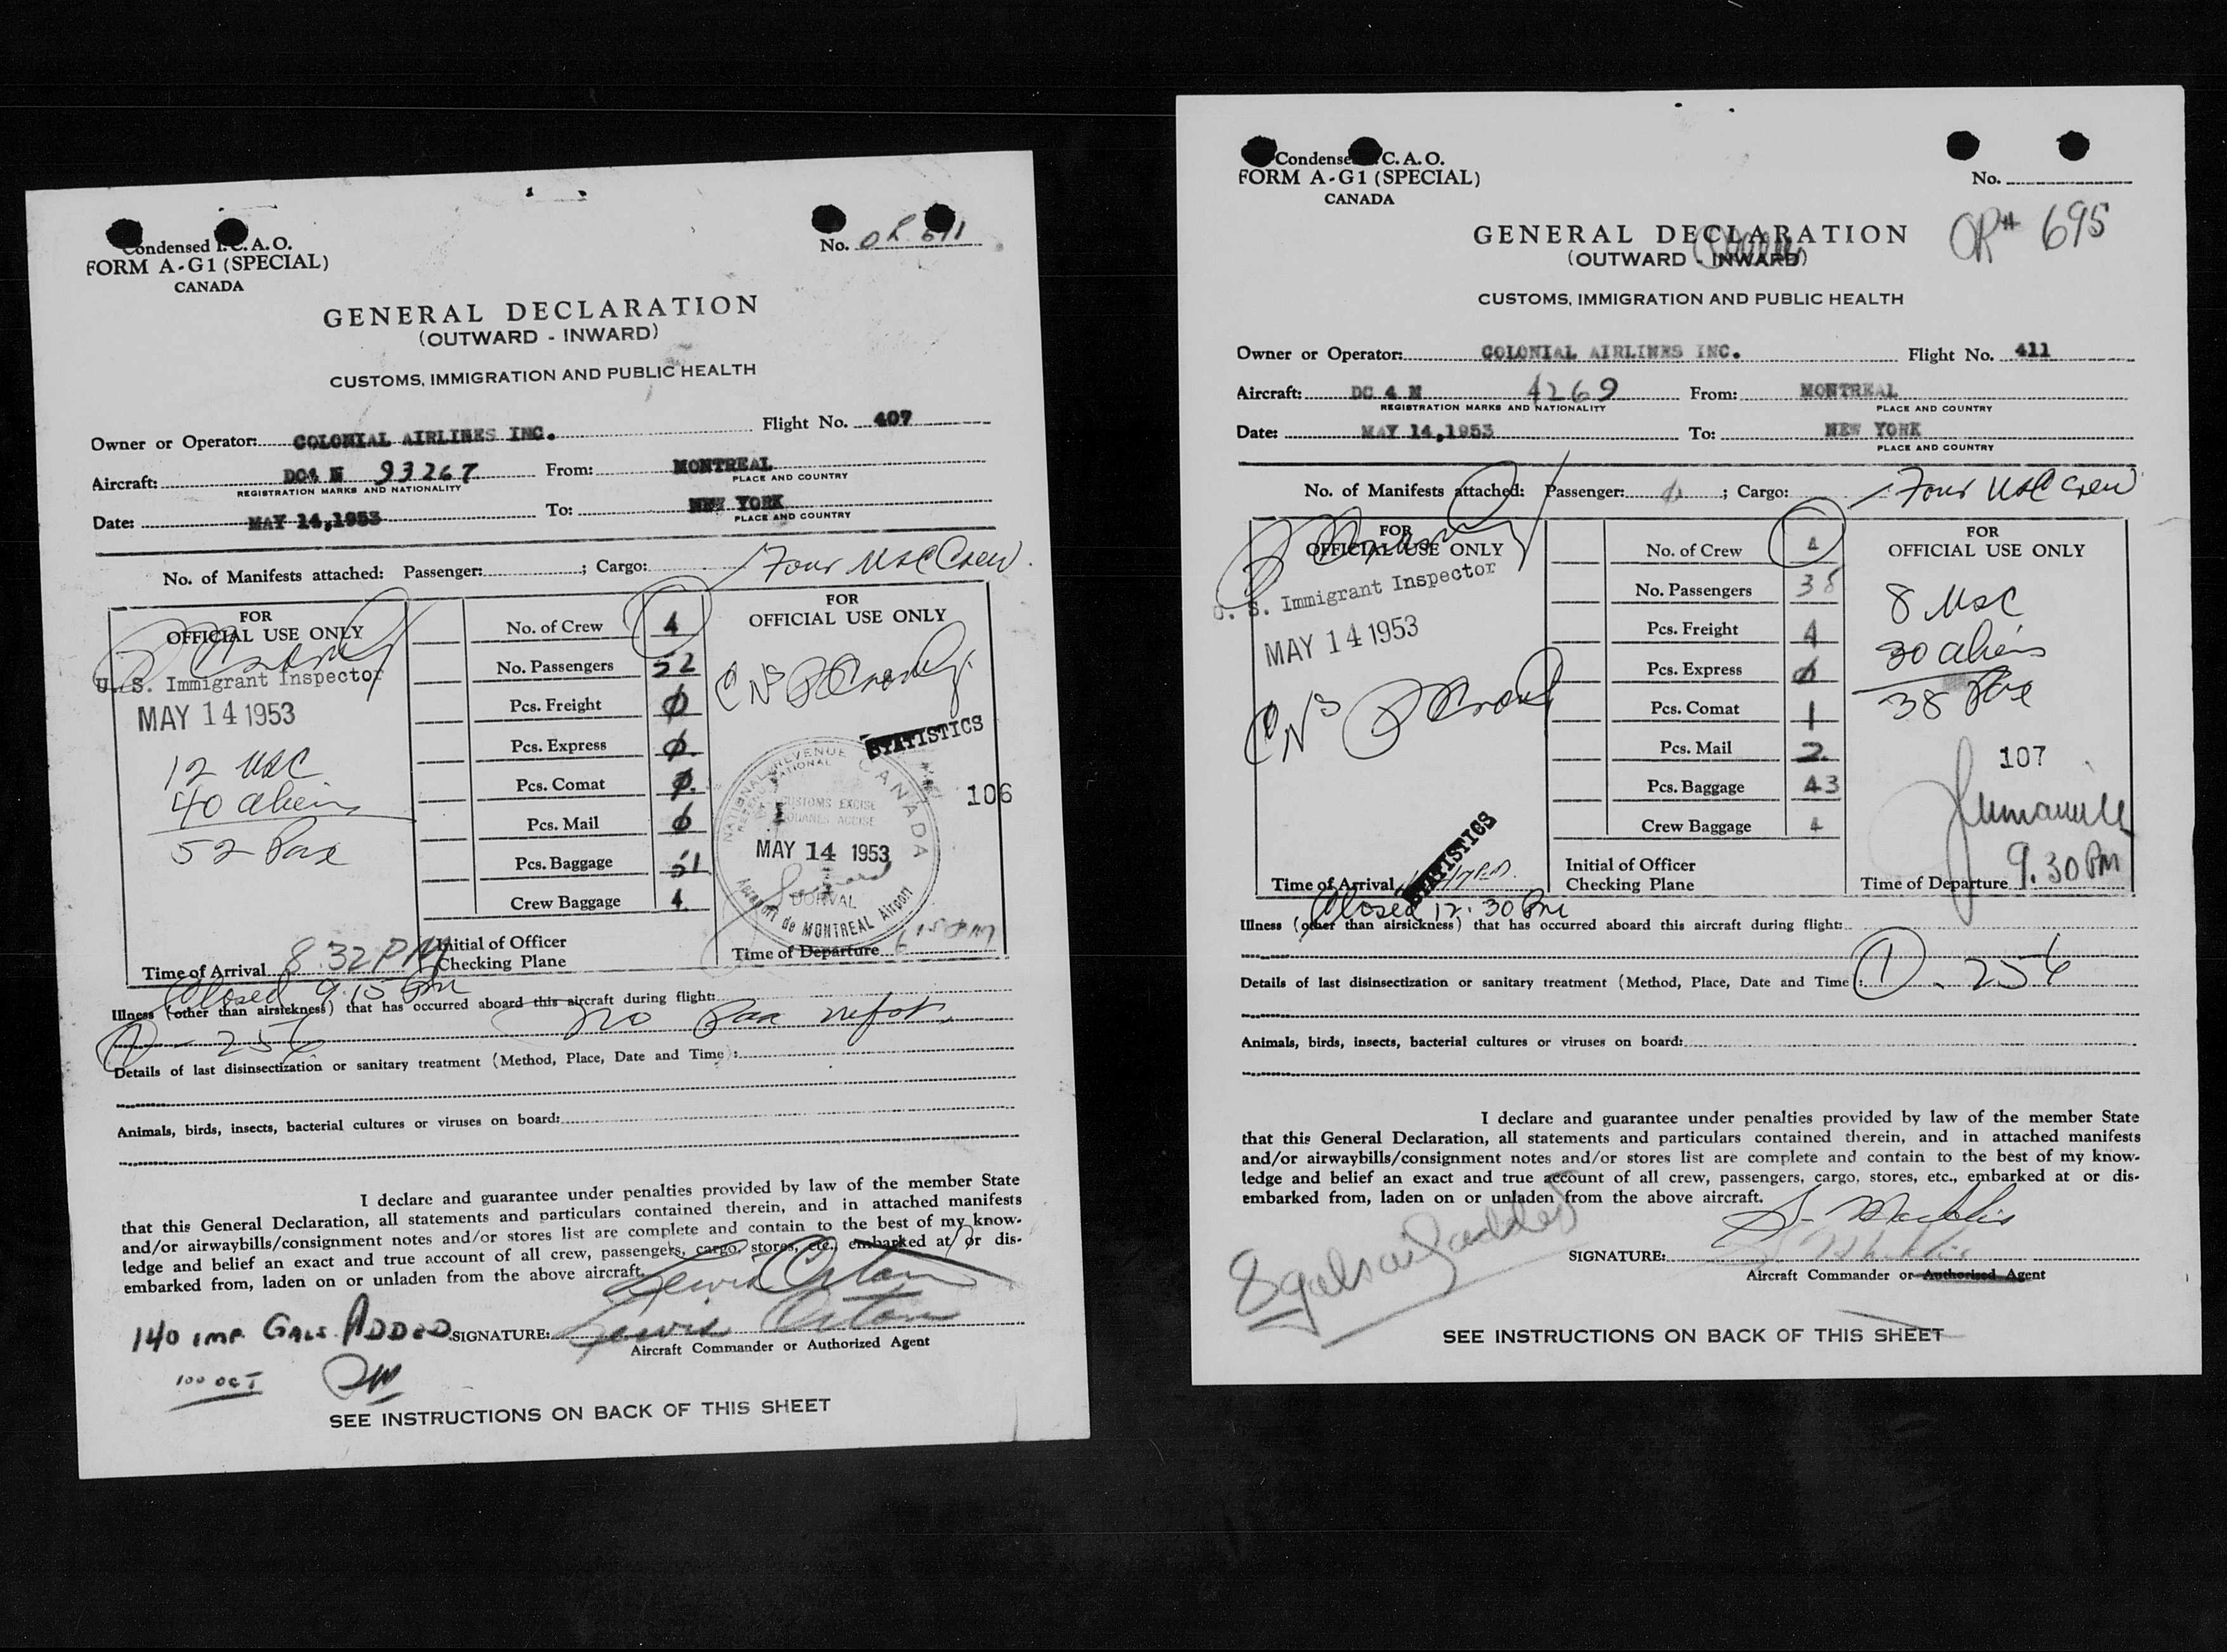 Condensed I. C. A. O.
FORM A-G1 (SPECIAL)
CANADA
No. OR 691
GENERAL DECLARATION
(OUTWARD - INWARD)
CUSTOMS, IMMIGRATION AND PUBLIC HEALTH
Owner or Operator: COLONIAL AIRLINES INC. Flight No. 407
Aircraft: DC4 N 93267 From: MONTREAL
REGISTRATION MARKS AND NATIONALITY PLACE AND COUNTRY
Date: MAY 14,1953 To: NEW YORK
PLACE AND COUNTRY
No. of Manifests attached: Passenger: ; Cargo: Four USC Crew
FOR
OFFICIAL USE ONLY
U. S. Immigrant Inspector
MAY 14 1953
12 USC
40 aliens
52 Pax
Time of Arrival 8.32 PM
Closed 9.15 Pm
No. of Crew 4
No. Passengers 52
Pcs. Freight 0
Pcs. Express 0
Pcs. Comat 0
Pcs. Mail 0
Pcs. Baggage 51
Crew Baggage 4
Initial of Officer
Checking Plane
FOR
OFFICIAL USE ONLY
STATISTICS
106
NATIONAL REVENUE CANADA
CUSTOMS EXCISE
DOUANES ACCISE
MAY 14 1953
DORVAL
Aéroport de MONTREAL Airport
Time of Departure 6 15 PM
Illness (other than airsickness) that has occurred aboard this aircraft during flight:
1 - 256 no
Details of last disinsectization or sanitary treatment (Method, Place, Date and Time):
Animals, birds, insects, bacterial cultures or viruses on board:
I declare and guarantee under penalties provided by law of the member State
that this General Declaration, all statements and particulars contained therein, and in attached manifests
and/or airwaybills/consignment notes and/or stores list are complete and contain to the best of my know-
ledge and belief an exact and true account of all crew, passengers, cargo, stores, etc., embarked at or dis-
embarked from, laden on or unladen from the above aircraft.
140 IMP. GALS ADDED
SIGNATURE: Lewis
Aircraft Commander or Authorized Agent
100 OCT
SEE INSTRUCTIONS ON BACK OF THIS SHEET
Condensed I. C. A. O.
FORM A-G1 (SPECIAL)
CANADA
No.
OR# 695
GENERAL DECLARATION
(OUTWARD - INWARD)
CUSTOMS, IMMIGRATION AND PUBLIC HEALTH
Owner or Operator: COLONIAL AIRLINES INC. Flight No. 411
Aircraft: DC 4 N 4269 From: MONTREAL
REGISTRATION MARKS AND NATIONALITY PLACE AND COUNTRY
Date: MAY 14,1953 To: NEW YORK
PLACE AND COUNTRY
No. of Manifests attached: Passenger: ; Cargo: Four USC Crew
FOR
OFFICIAL USE ONLY
U. S. Immigrant Inspector
MAY 14 1953
STATISTICS
Time of Arrival
Closed 12.30 Pm
No. of Crew 4
No. Passengers 38
Pcs. Freight 4
Pcs. Express 0
Pcs. Comat 1
Pcs. Mail 2
Pcs. Baggage 43
Crew Baggage 4
Initial of Officer
Checking Plane
FOR
OFFICIAL USE ONLY
8 USC
30 aliens
38 Pax
107
Time of Departure 9.30 PM
Illness (other than airsickness) that has occurred aboard this aircraft during flight:
Details of last disinsectization or sanitary treatment (Method, Place, Date and Time): 1 - 256
Animals, birds, insects, bacterial cultures or viruses on board:
I declare and guarantee under penalties provided by law of the member State
that this General Declaration, all statements and particulars contained therein, and in attached manifests
and/or airwaybills/consignment notes and/or stores list are complete and contain to the best of my know-
ledge and belief an exact and true account of all crew, passengers, cargo, stores, etc., embarked at or dis-
embarked from, laden on or unladen from the above aircraft.
8 gals oil added
SIGNATURE:
Aircraft Commander or Authorized Agent
SEE INSTRUCTIONS ON BACK OF THIS SHEET